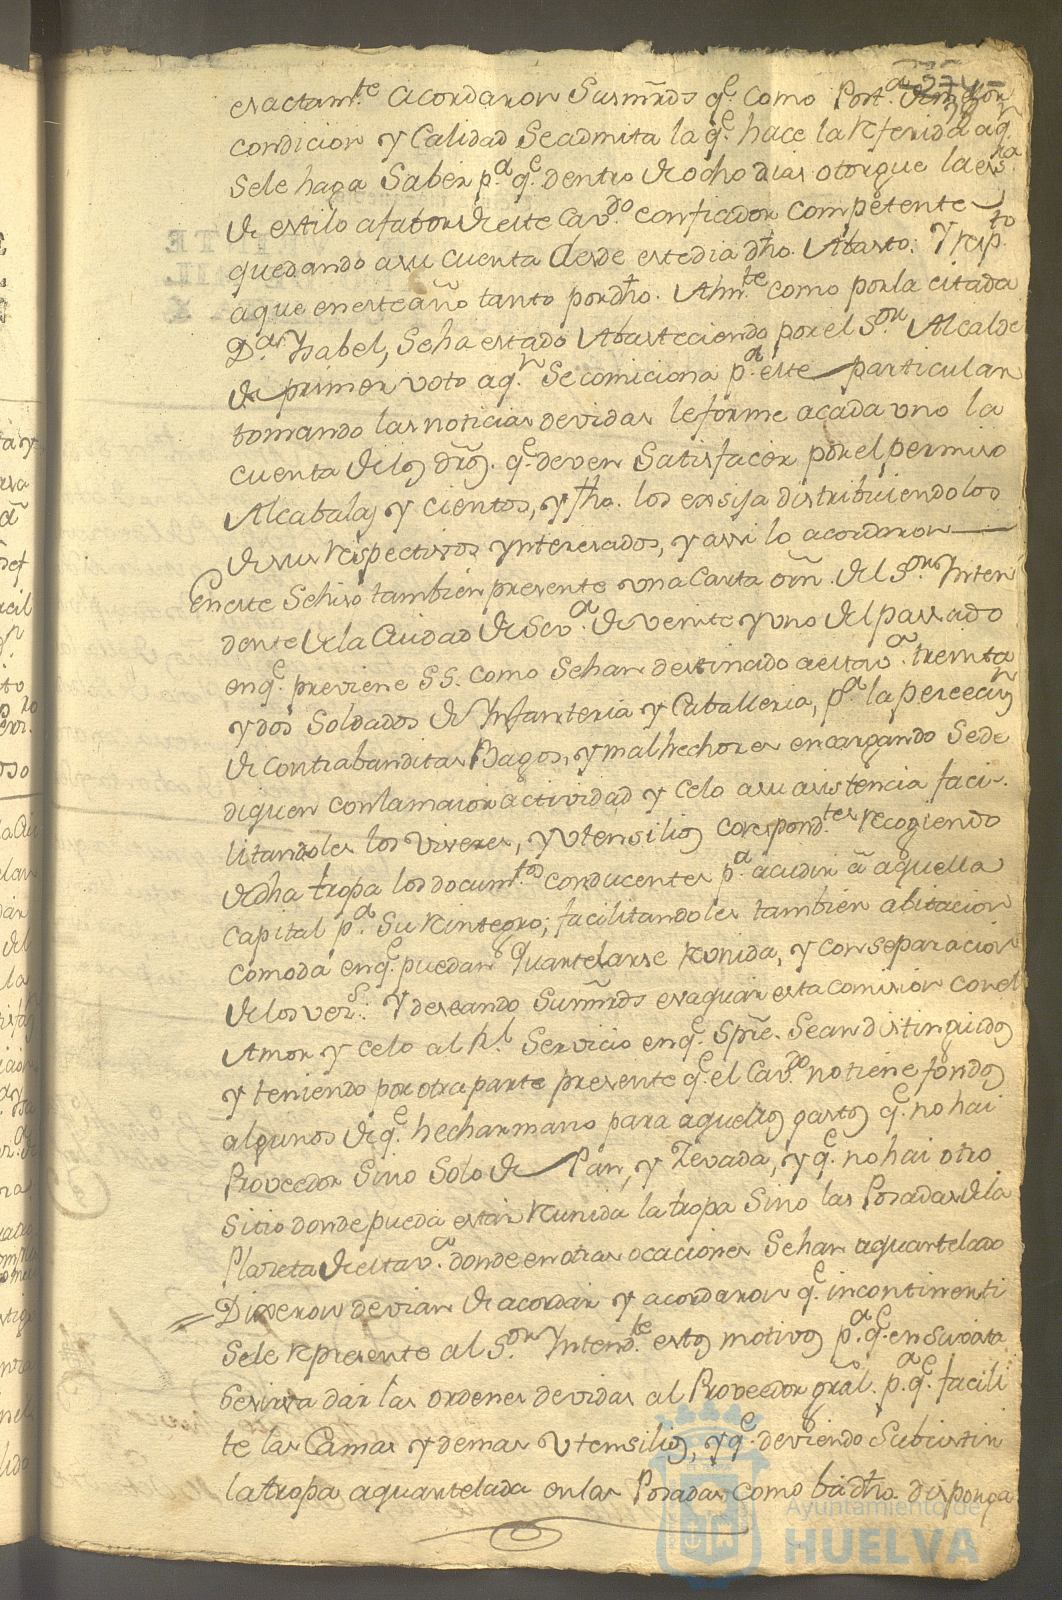 274
exactamte. acordaron Susmrds qe. como Port.a de mejor
condicion y Calidad Seadmita la qe. hace la Referida aqn.
Sele haga Saber pa. qe. dentro de ocho dias otorgue la essra.
de estilo afabor de este Cavdo. con fiador competente
quedando asu cuenta desde este dia dho. Abasto: Y respto.
aque en este año tanto por dho. Ahmte. como por la citada
Da. Ysabel, Seha estado Abasteciendo por el Sor. Alcalde
de primer voto aqn. Se comiciona pa. este particular
tomando las noticias devidas leforme acada uno la
cuenta de los dros. qe. deven Satisfacer por el permiso
Alcabalas y cientos, y fho. los exsija distribuiendolos
de sus respectivos ynteresados, y assi lo acordaron
En este Sehiso tambien presente una Carta orn. del Sor. Ynten
dente de la Ciudad de Seva. de veinte y uno del passado
en qe. previene S S. como Sehan destinado aesta va. treinta
y dos Soldados de Ynfanteria y Caballeria, pa. la persecun.
de contrabanditas Bagos, y malhechores encargando Sede
diquen con la maior actividad y celo asu asistencia faci-
litandoles los viveres, y utensilios correspondtes. recogiendo
de dha tropa los documtos. conducentes pa. acudir á aquella
capital pa. Su reintegro; facilitandoles tambien abitacion
comoda en qe. puedan Quartelarse reunida, y con separacion
de los vezs.: Y deseando Susmrds esaquar esta comision con el
Amor y celo al Rl. Servicio en qe. Spre. Sean distinguidos
y teniendo por otra parte presente qe. el Cavdo. no tiene fondos
algunos de qe. hechar mano para aquellos gastos qe. no hai
Proveedor Sino Solo de Pan, y Zevada, y qe. no hai otro
Sitio donde pueda estar reunida la tropa Sino las Posadas de la
Plazeta de esta va. donde en otras ocaciones Sehan aquartelado
Dixeron devian de acordar y acordaron qe. incontinenti
Sele represente al Sor. Yntendte. estos motivos pa. qe. en Su vista
Sesirva dar las ordenes devidas al Proveedor gral. pa. qe. facili
te las Camas y demas Utensilios, y qe. deviendo Subsistir
la tropa aquartelada en las Posadas como ba dho. disponga
Ayuntamiento de
HUELVA